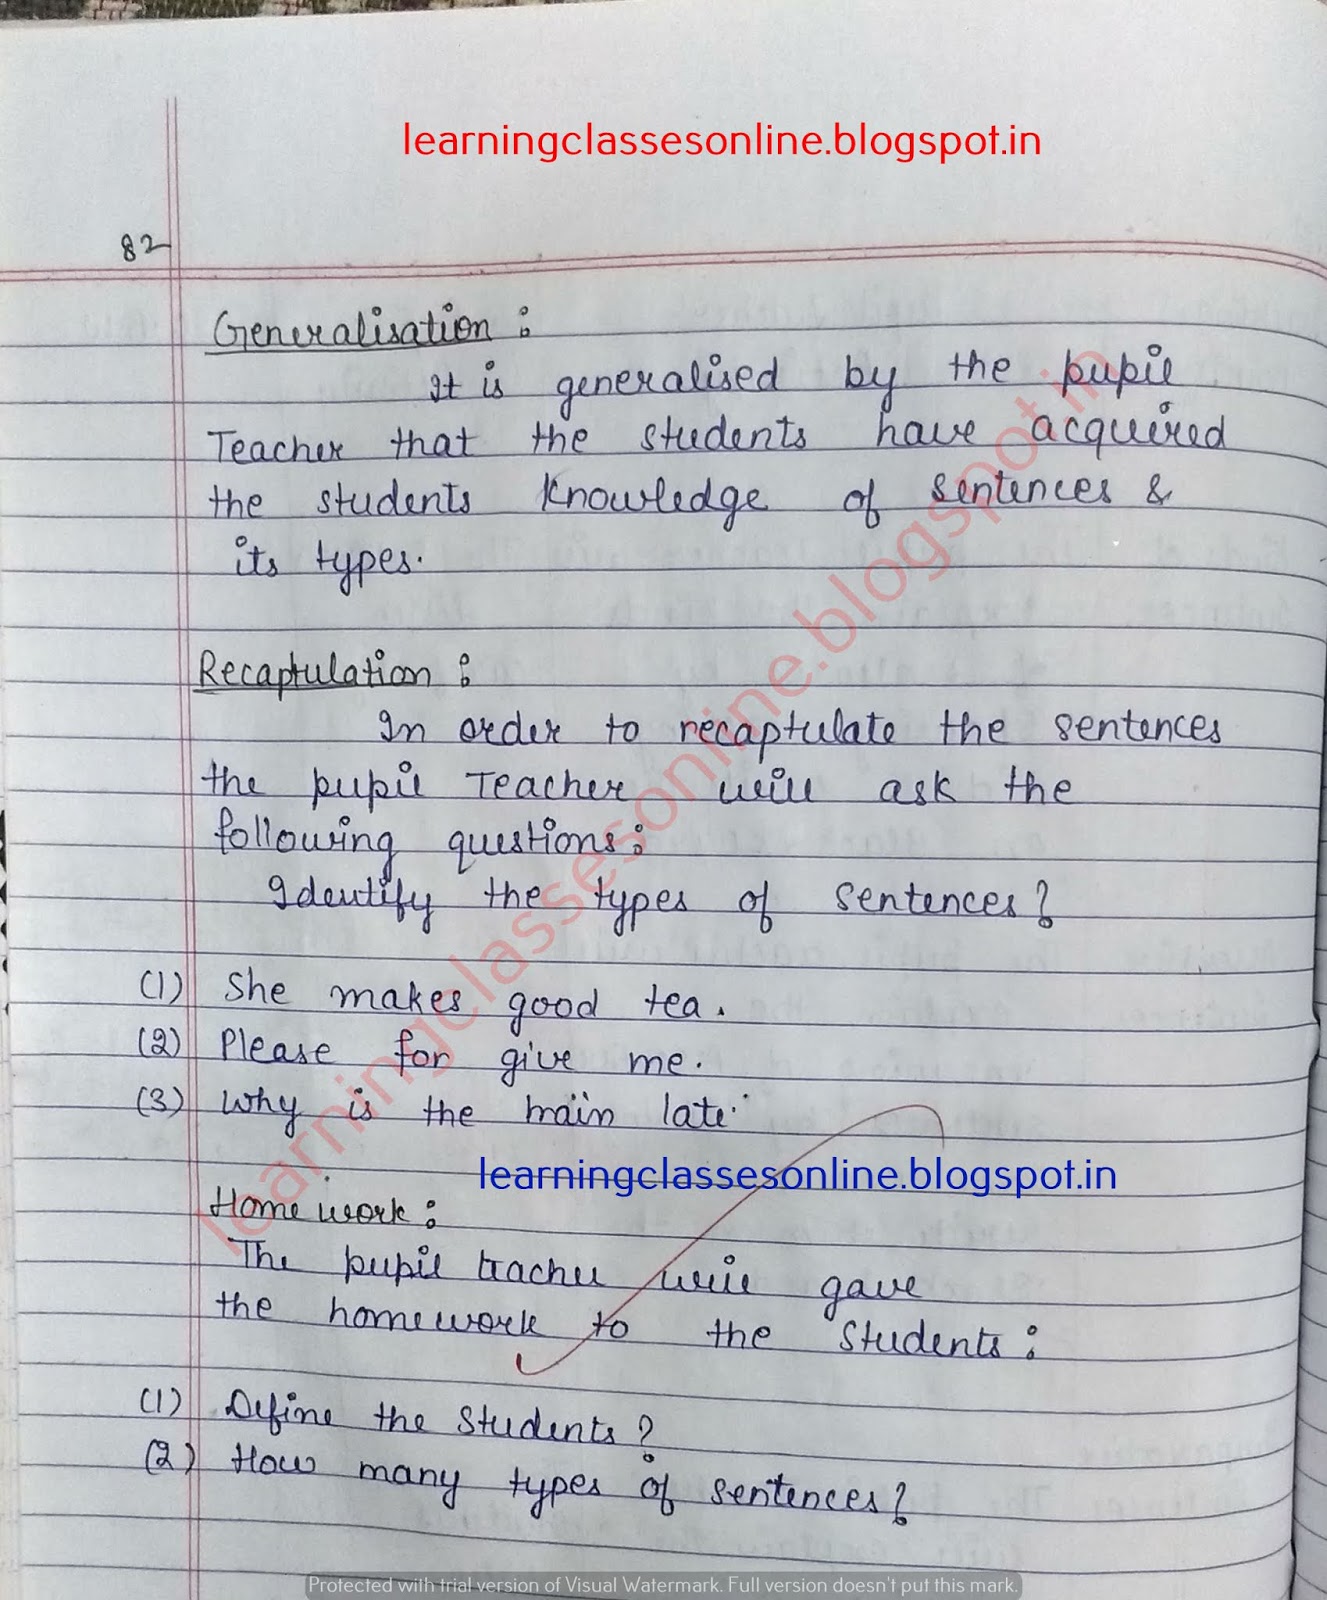 learningclassesonline.blogspot.in
82
Generalisation :
It is generalised by the pupil
Teacher that the students have acquired
the students knowledge of sentences &
its types.
Recaptulation :
In order to recaptulate the sentences
the pupil Teacher will ask the
following questions :
Identify the types of sentences?
(1) She makes good tea.
(2) Please for give me.
(3) Why is the main late.
learningclassesonline.blogspot.in
Home work :
The pupil teacher will gave
the homework to the students :
(1) Define the students?
(2) How many types of sentences?
learningclassesonline.blogspot.in
Protected with trial version of Visual Watermark. Full version doesn't put this mark.